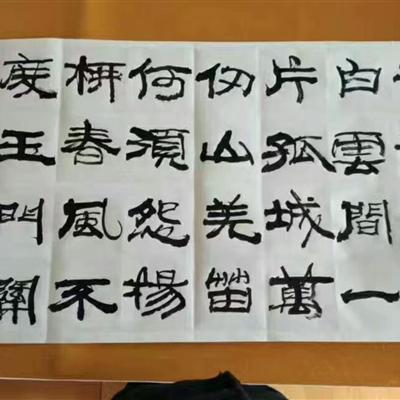 白雲間一
片孤城萬
仞山羌笛
何須怨楊
柳春風不
度玉門關